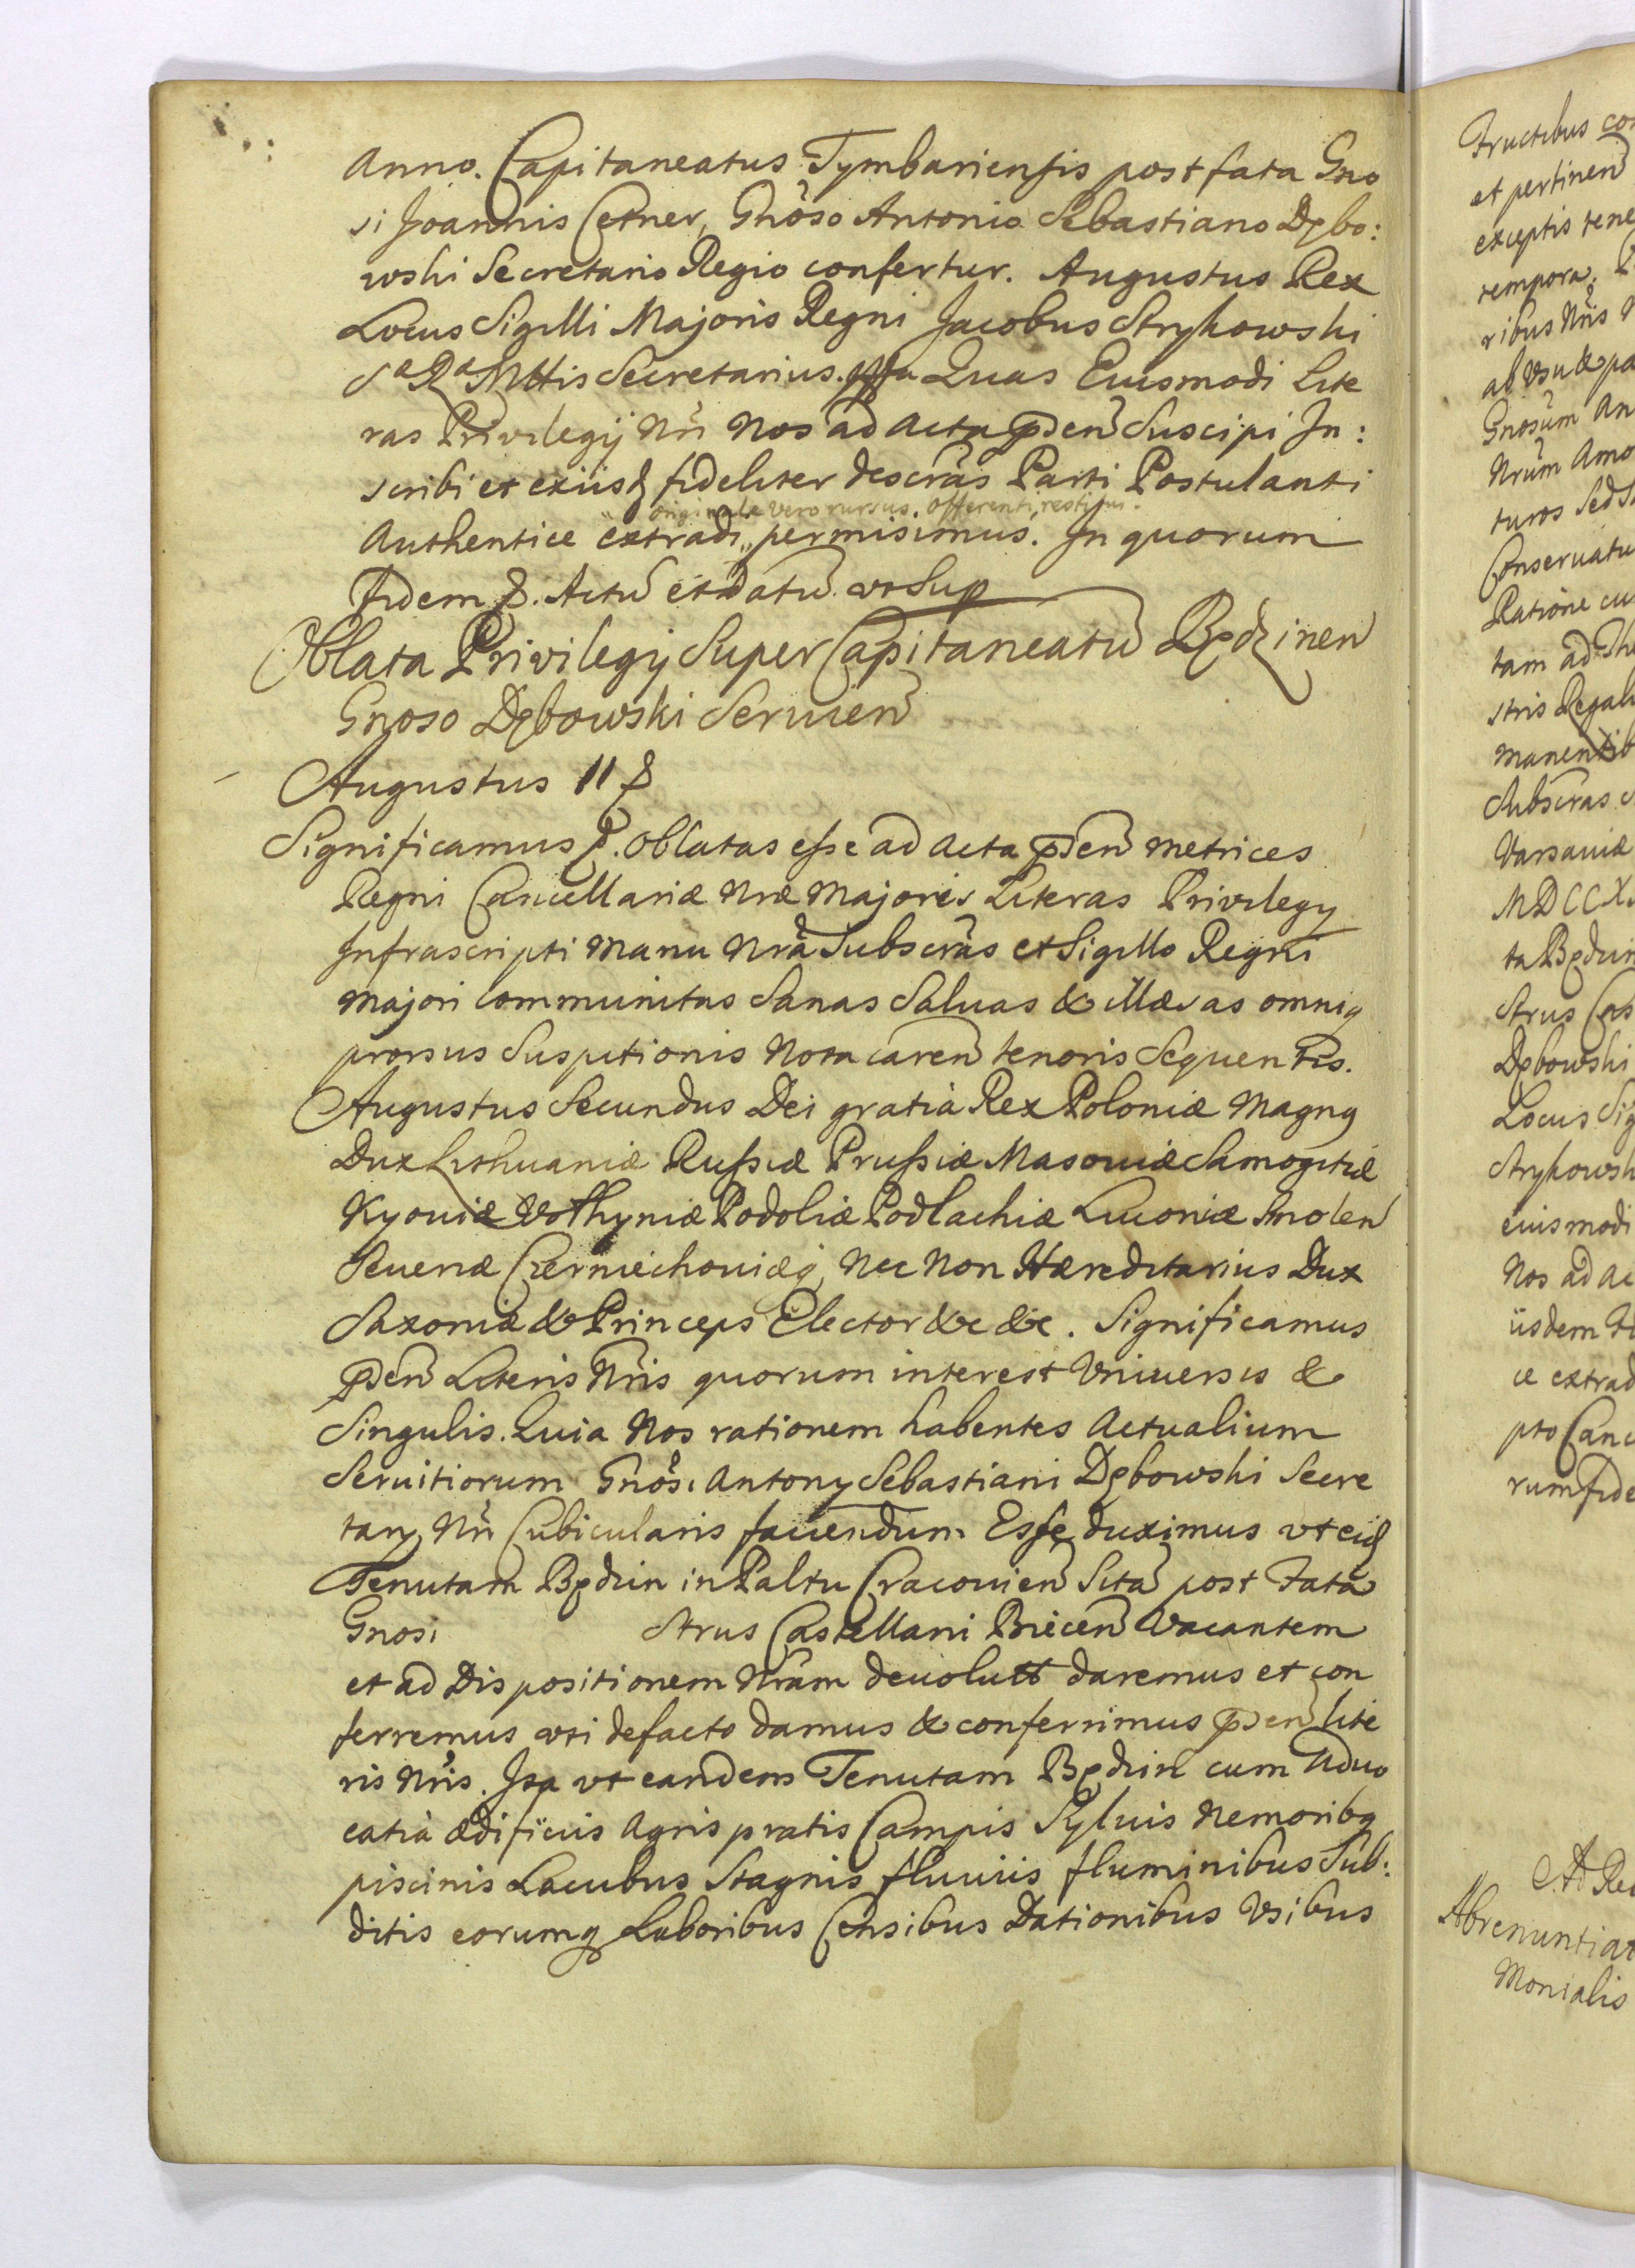 Anno. Capitaneatus Tymbariensis post fata Gno
si Joannis Cetner, Gnoso Antonio Sebastiano Dębo:
wski Secretario Regio confertur. Augustus Rex
Locus Sigilli Majoris Regni Jacobus Strykowski
Sa Ra Mttis Secretarius. Quas Eiusmodi Lite
ras Privilegij Nri Nos ad Acta pñden Suscipi In:
scribi et exiisd fideliter descras Parti Postulanti
originale vero rursus offerenti restitui.
Authentice extradi permisimus. In quorum
fidem &. Actu et datu ut Sup
Oblata Privilegij Super Capitaneatu Będzinen
Gnoso Dębowski Servien
Augustus II &
Significamus &. Oblatas esse ad Acta pñden Metrices
Regni Cancellariæ Nræ Majoris Literas Privilegy
Infrascripti Manu Nrâ Subscras et Sigillo Regni
Majori Communitas Sanas Salvas & illæsas omniq
prorsus Suspitionis Nota caren tenoris Sequentis.
Augustus Secundus Dei gratia Rex Poloniæ Magnq
Dux Lithuaniæ Russiæ Prussiæ Masoviæ Samogitiæ
Kyoviæ Volhyniæ Podoliæ Podlachiæ Livoniæ Smolen
Severiæ Czerniechoviæq Nec Non Hæreditarius Dux
Saxoniæ & Princeps Elector &c &c. Significamus
pñden Literis Nris quorum interest Vniversis &
Singulis. Quia Nos rationem habentes Actualium
Servitiorum Gnosi Antony Sebastiani Dębowski Secre
tary Nri Cubicularis favendum Esse duximus vt eid
Tenutam Będzin in Paltu Cracovien Sita post Fata
Gnosi Strus Castellani Biecen Vacantem
et ad Dispositionem Nram devolutt daremus et con
ferremus vti defacto damus & conferrimus pñden lite
ris Nris. Ita vt eandem Tenutam Będzin cum Advo
catia ædificiis Agris pratis Campis Sylvis Nemoribq
piscinis Lacubus Stagnis fluviis fluminibus Sub:
ditis eorumq Laboribus Censibus Dationibus Vsibus
Fructibus
et pertinen
exceptis
tempora.
ribus Nris
ab vsu &
Gnosum
Nrum
turos
Ratione
tam ad
stris
Subscras
Varsaviæ
Strus
Dębowski
Locus
eiusmodi
Nos ad
iisdem
Abrenuntiat
Monialis